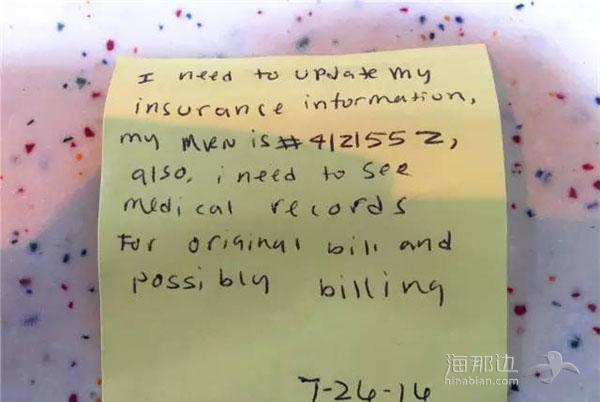 I need to update my
insurance information,
my MRN is # 4121552,
also, i need to see
medical records
For original bill and
possibly billing
7-26-16
海那边
hinabian.com